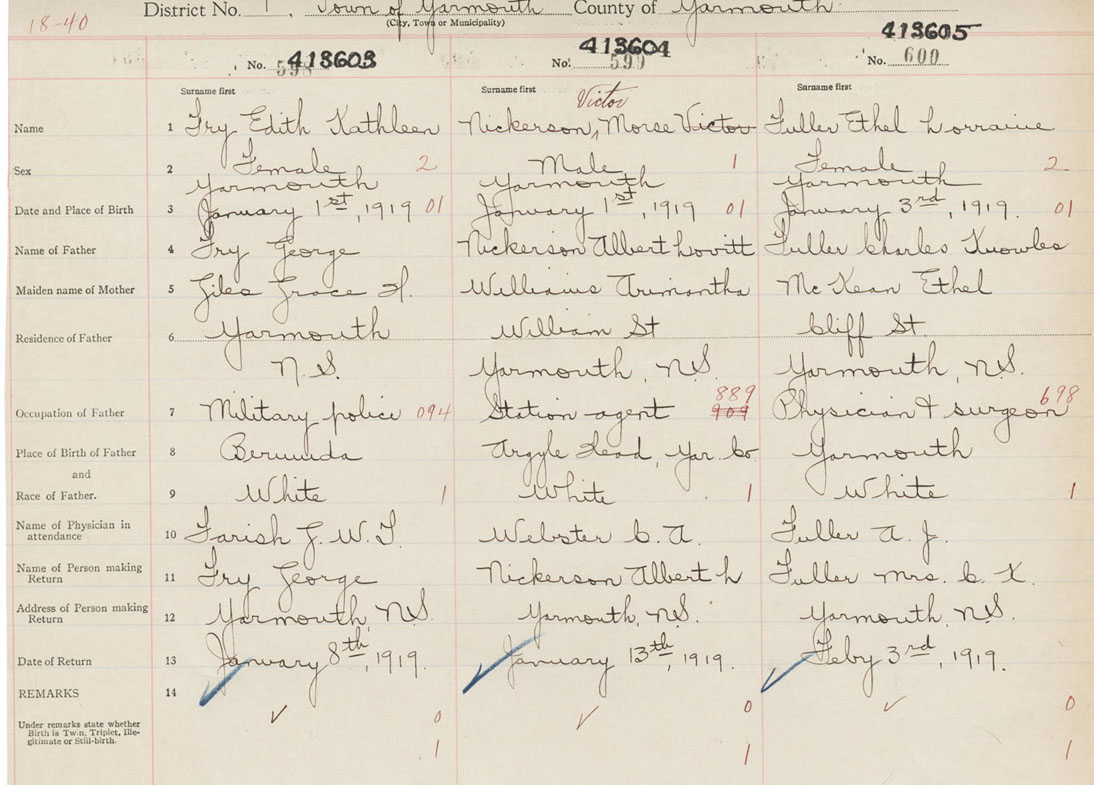 District No. 1, Town of Yarmouth County of Yarmouth
(City, Town or Municipality)
18-40
No. 598 413603 No. 599 413604 No. 600 413605
Surname first Surname first Surname first
Victor
Name 1 Fry Edith Kathleen Nickerson, Morse Victor Fuller Ethel Lorraine
Sex 2 Female 2 Male 1 Female 2
Yarmouth Yarmouth Yarmouth
Date and Place of Birth 3 January 1st, 1919 01 January 1st, 1919 01 January 3rd, 1919. 01
Name of Father 4 Fry George Nickerson Albert Lovitt Fuller Charles Knowles
Maiden name of Mother 5 Giles Grace H. Williams Arimantha McKean Ethel
Residence of Father 6 Yarmouth William St Cliff St
N.S. Yarmouth, N.S. Yarmouth, N.S.
889 698
Occupation of Father 7 Military police 094 Station-agent 909 Physician & surgeon
Place of Birth of Father 8 Bermuda Argyle Head, Yar. Co. Yarmouth
and
Race of Father. 9 White 1 White 1 White 1
Name of Physician in
attendance 10 Farish G. W. T. Webster C. A. Fuller A. J.
Name of Person making
Return 11 Fry George Nickerson Albert L Fuller Mrs. C. K.
Address of Person making
Return 12 Yarmouth, N.S. Yarmouth, N.S. Yarmouth, N.S.
Date of Return 13 January 8th, 1919. January 13th, 1919. Feby 3rd, 1919.
REMARKS 14
0 0 0
Under remarks state whether
Birth is Twin, Triplet, Ille-
gitimate or Still-birth.
1 1 1